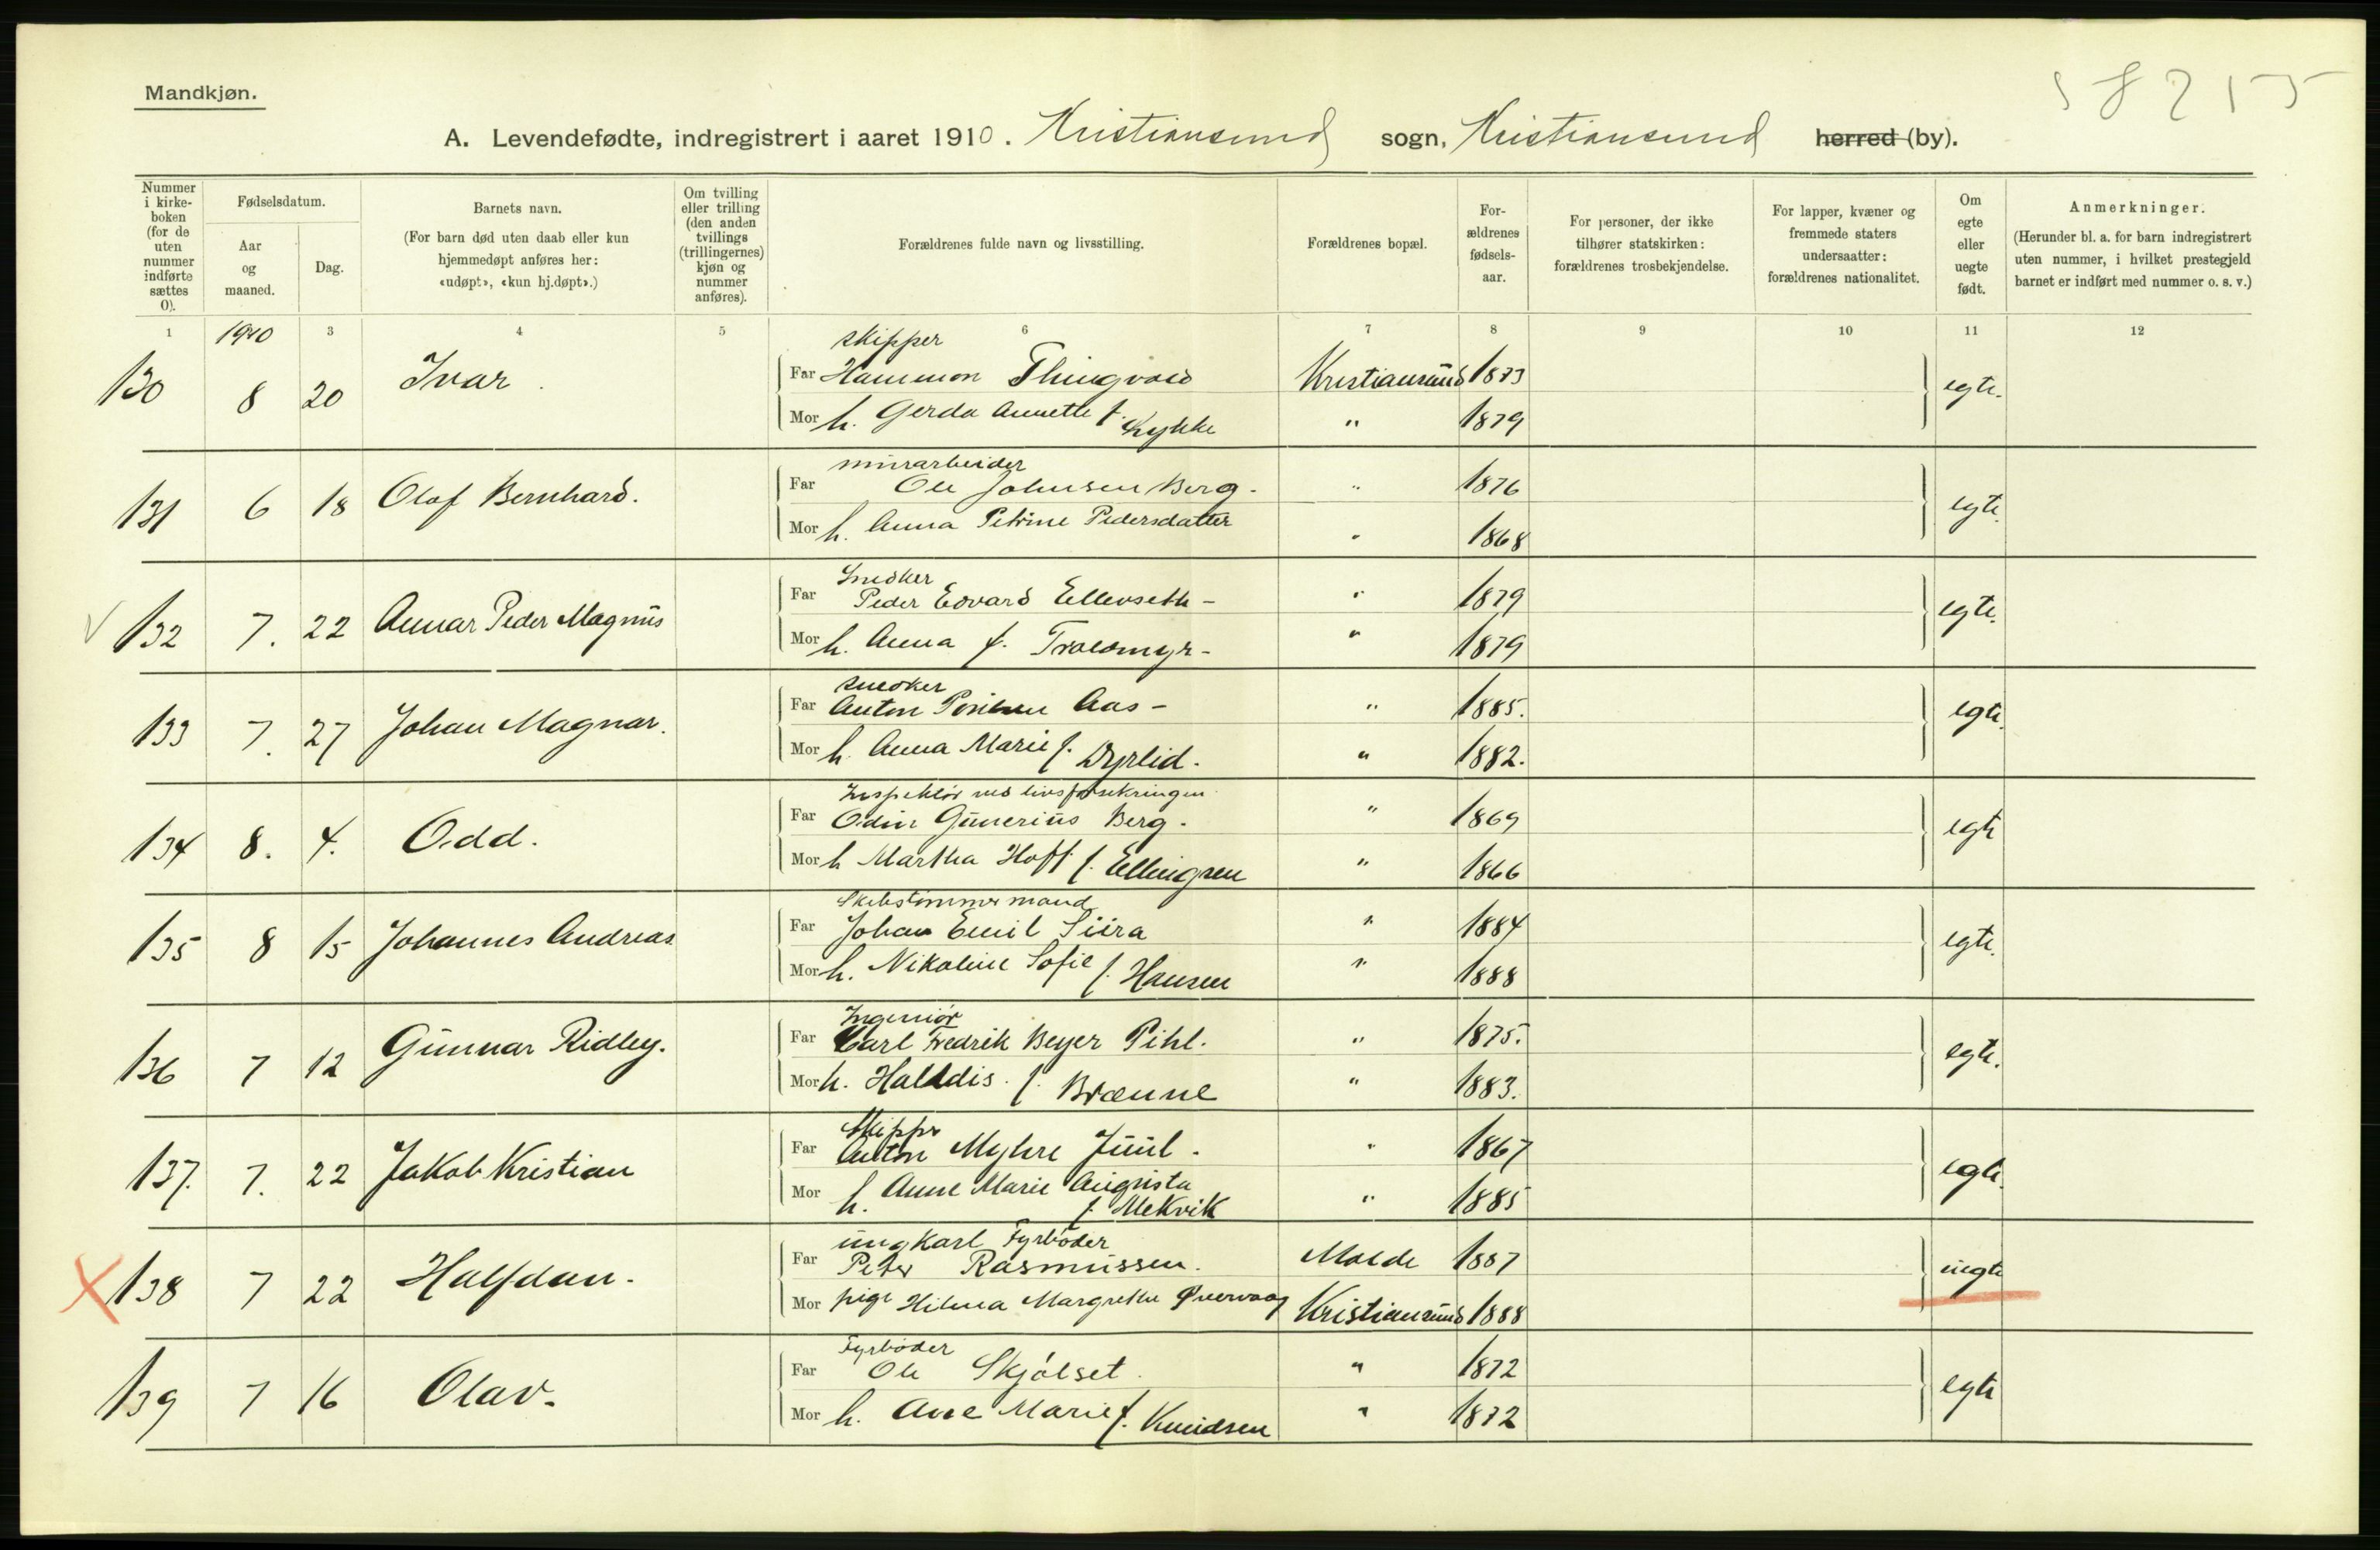 58215
Mandkjøn.
A. Levendefødte, indregistrert i aaret 1910. Kristiansund sogn, Kristiansund herred (by).
Nummer i kirke-boken (for de uten nummer indførte sættes 0).
Fødselsdatum.
Aar og maaned.
Dag.
Barnets navn.
(For barn død uten daab eller kun hjemmedøpt anføres her: «udøpt», «kun hj.døpt».)
Om tvilling eller trilling (den anden tvillings (trillingernes) kjøn og nummer anføres).
Forældrenes fulde navn og livsstilling.
Forældrenes bopæl.
For-ældrenes fødsels-aar.
For personer, der ikke tilhører statskirken: forældrenes trosbekjendelse.
For lapper, kvæner og fremmede staters undersaatter: forældrenes nationalitet.
Om egte eller uegte født.
Anmerkninger.
(Herunder bl. a. for barn indregistrert uten nummer, i hvilket prestegjeld barnet er indført med nummer o. s. v.)
1 1910 3 4 5 6 7 8 9 10 11 12
skipper
130 8 20 Ivar. Far Hammon Thingvold Kristiansund 1873 egte.
Mor h. Gerda Annette f. Lykke " 1879
murarbeider
131 6 18 Olaf Bernhard. Far Ole Johnsen Berg. " 1876 egte.
Mor h. Anna Petrine Pedersdatter " 1868
Snedker
V 132 7. 22 Annar Peder Magnus Far Peder Edvard Ellevseth - " 1879 egte.
Mor h. Anna f. Troldmyr - " 1879
snedker
133 7. 27 Johan Magnar. Far Anton Aas - " 1885. egte.
Mor h. Anna Marie f. Dyrlid. " 1882.
Inspektör ved livsforsekringen
134 8. 4. Odd. Far Odin Gunerius Berg. " 1869 egte
Mor h Martha Hoff f. Ellingsen " 1866
Skibstömmermand
135 8 15 Johannes Andreas Far Johan Emil Siira " 1884 egte.
Mor h. Nikoline Sofie f. Hansen " 1888
Ingeniör
136 7 12 Gunnar Ridley. Far Carl Fredrik Beyer Pihl. " 1875. egte.
Mor h. Halldis. f. Brænne " 1883.
Skipper
137. 7. 22 Jakob Kristian Far Anton Myhre Juul. " 1867 egte.
Mor h. Anne Marie Augusta f. Mekvik " 1885
ungkarl Fyrböder
X 138 7 22 Halfdan. Far Peter Rasmussen. Molde 1887 uegte
Mor pige Hilma Margrethe Kristiansund 1888
Fyrböder
139 7 16 Olav. Far Ole Skjölset. " 1872 egte
Mor h. Ane Marie f. Knudsen " 1872